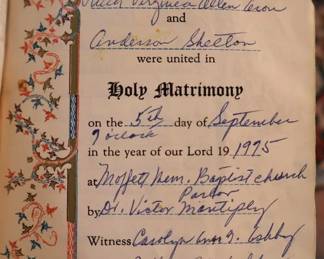 Virginia Allen
and
Anderson Skelton
were united in
Holy Matrimony
on the 5th day of September
9 o'clock
in the year of our Lord 19 1995
at Moffett Mem. Baptist church
Parlor
by Dr. Victor Mantiply
Witness Carolyn Ann G. Ashby